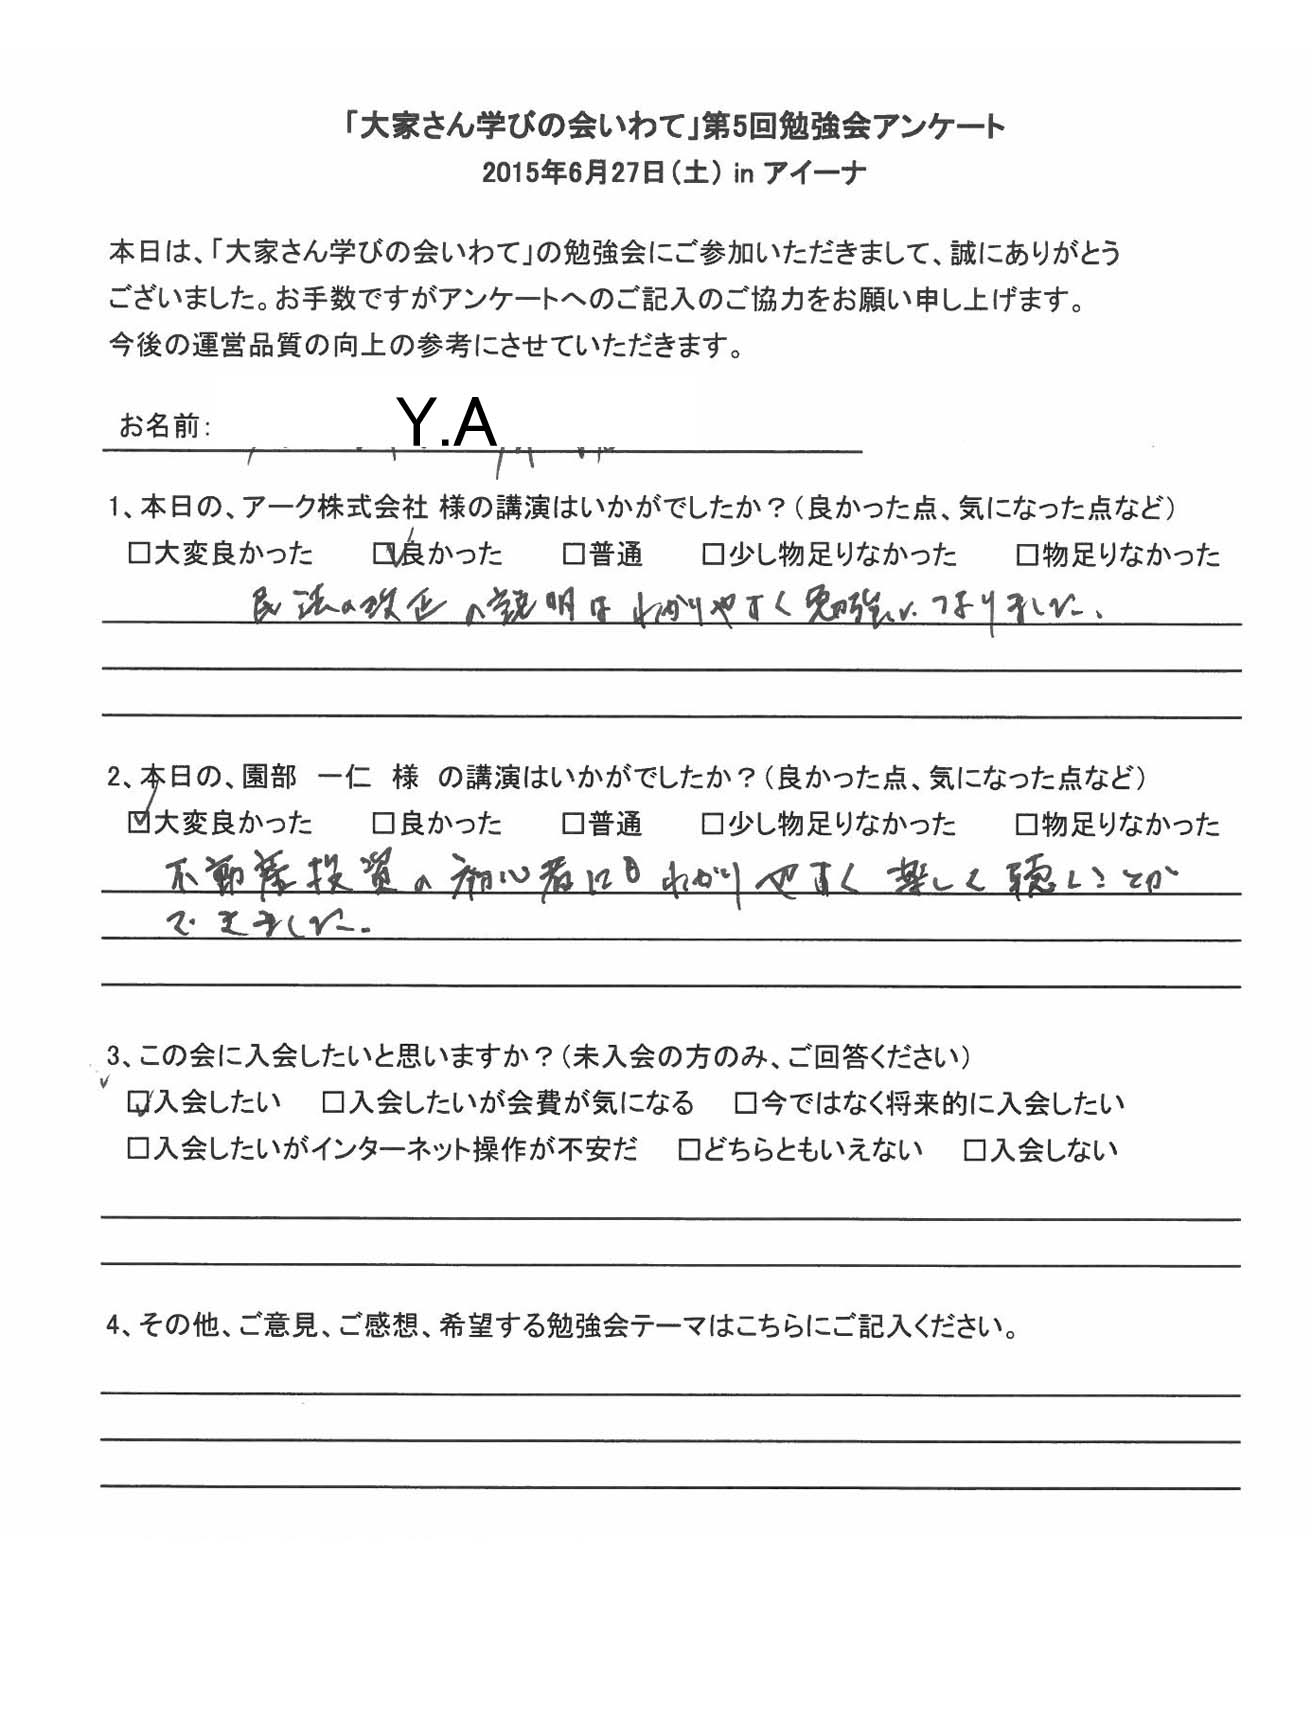 「大家さん学びの会いわて」第5回勉強会アンケート
2015年6月27日（土） in アイーナ
本日は、「大家さん学びの会いわて」の勉強会にご参加いただきまして、誠にありがとう
ございました。お手数ですがアンケートへのご記入のご協力をお願い申し上げます。
今後の運営品質の向上の参考にさせていただきます。
お名前： Y.A
1、本日の、アーク株式会社 様の講演はいかがでしたか？（良かった点、気になった点など）
□大変良かった ☑良かった □普通 □少し物足りなかった □物足りなかった
民法の改正の説明はわかりやすく勉強になりました。
2、本日の、園部 一仁 様 の講演はいかがでしたか？（良かった点、気になった点など）
☑大変良かった □良かった □普通 □少し物足りなかった □物足りなかった
不動産投資の初心者にもわかりやすく楽しく聴くことが
できました。
3、この会に入会したいと思いますか？（未入会の方のみ、ご回答ください）
☑入会したい □入会したいが会費が気になる □今ではなく将来的に入会したい
□入会したいがインターネット操作が不安だ □どちらともいえない □入会しない
4、その他、ご意見、ご感想、希望する勉強会テーマはこちらにご記入ください。